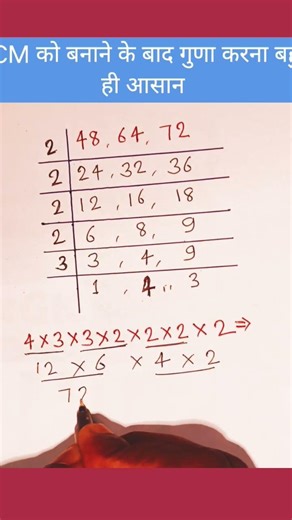 CM को बनाने के बाद गुणा करना बहु
ही आसान
2 | 48, 64, 72
2 | 24, 32, 36
2 | 12, 16, 18
2 | 6, 8, 9
3 | 3, 4, 9
1, 4, 3
4×3×3×2×2×2×2⇒
12 × 6 × 4 × 2
72